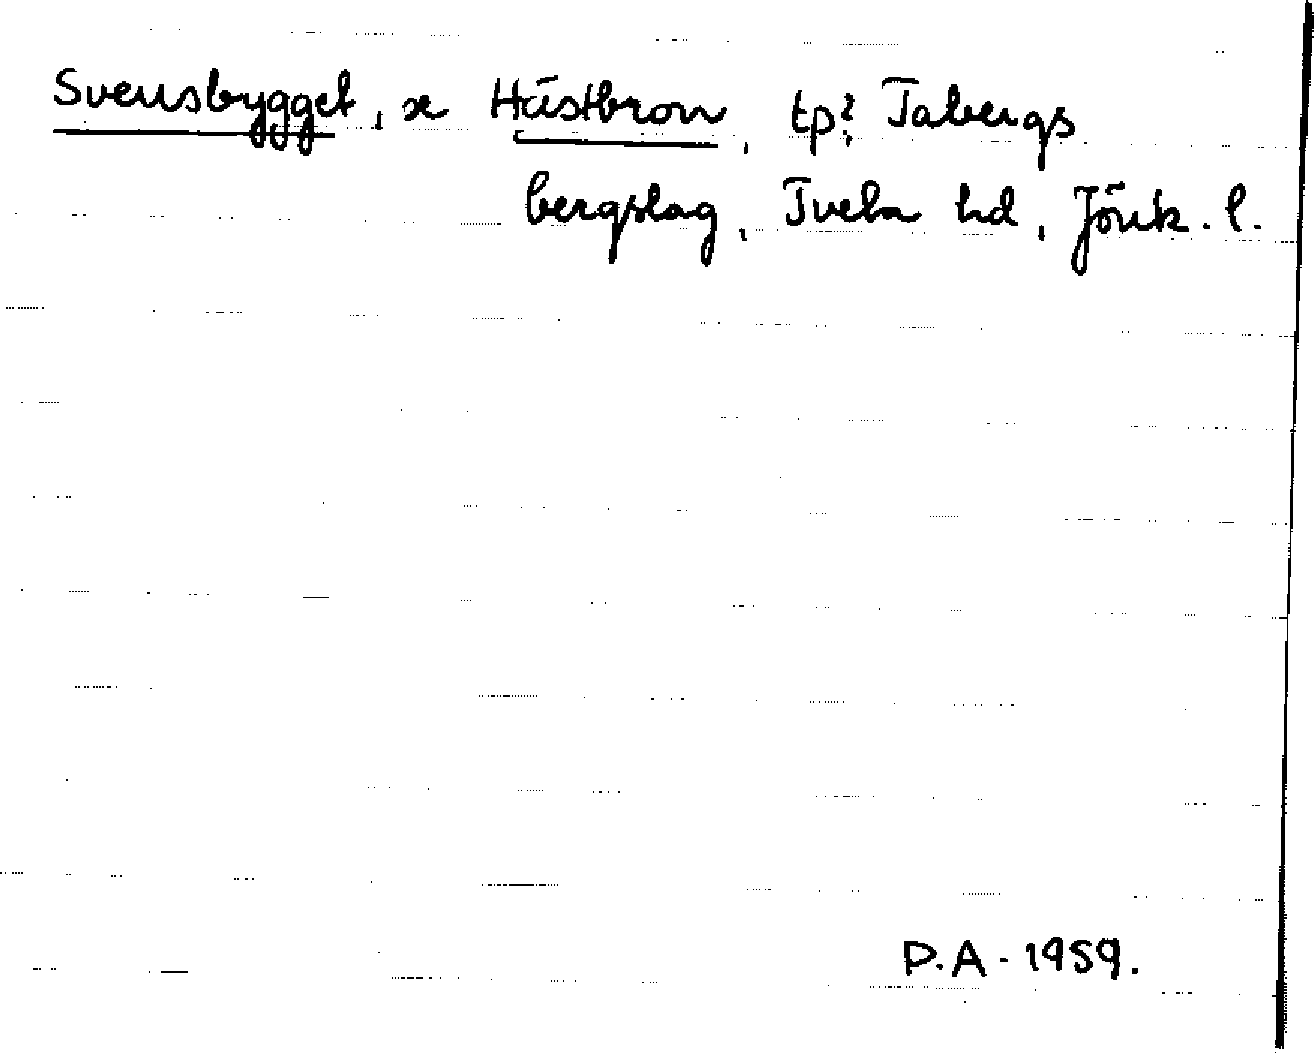 Svensbygget, se Hästbron, tp? Tabergs
bergslag, Tveta hd, Jönk. l.
P.A - 1959.